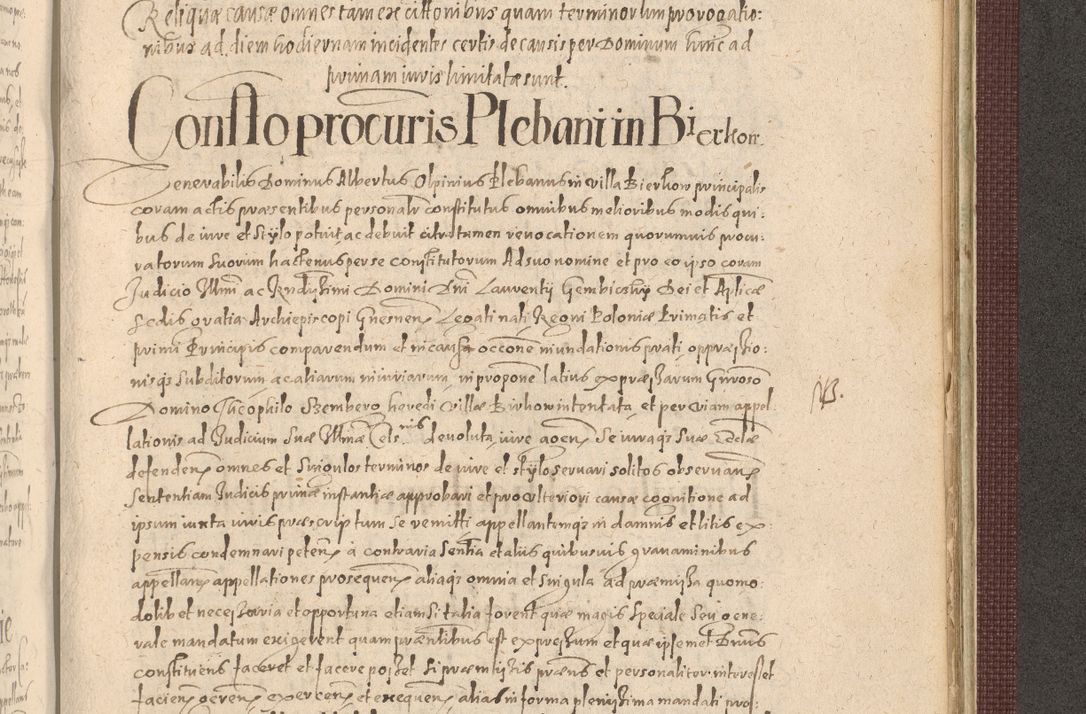 Reliquæ causæ omnes tam ex cittonibus quam terminorum prorogatio:
nibus ad diem hodiernam incidentes certis de causis per Dominum hinc ad
primam iuris limitatæ sunt.
Consto procuris Plebani in Bierkow.
Venerabilis Dominus Albertus Olpinius Plebanus in villa Bierkow principalis
coram actis præsentibus personalr constitutus omnibus melioribus modis qui:
bus de iure et stylo potuit ac debuit citra tamen revocationem quorumuis procu:
ratorum suorum hactenus per se constitutorum Ad suo nomine et pro eo ipso coram
Judicio Illmi ac Rndissimi Domini Dni Laurentij Gembiczky Dei et Apticæ
Sedis gratia Archiepiscopi Gnesnen Legati nati Regni Poloniæ Primatis et
primi Principis comparendum et in causa occone inundationis prati oppressio:
nisqs subditorum ac aliarum iniuriarum in propone latius expressarum Gnroso
Domino Theophilo Szembero heredi villæ Birkow intentata et per viam appel
NB.
lationis ad Judicium suæ Illmæ Cels.nis devoluta iure agen se iuraqs suæ Ecclæ
defenden omnes et singulos terminos de iure et stylo servari solitos observan
sententiam Judicis primæ instantiæ approbari et pro ulteriori causæ cognitione ad
ipsum iuxta iuris præscriptum se remitti appellantemqs in damnis et litis ex:
pensis condemnari peten à contraria sentia et aliis quibusuis gravaminibus
appellan appellationes prosequen aliaqs omnia et singula ad præmissa quomo:
dolibet necessaria et opportuna etiam si talia forent quæ magis speciale seu gene:
rale mandatum exigerent quam præntibus est expressum et quæ ipsemet Dnus
constituens faceret et facere posset si præmissis præns et personaliter interesset
facien geren exercen et exequen alias in forma plenissima mandati pro: